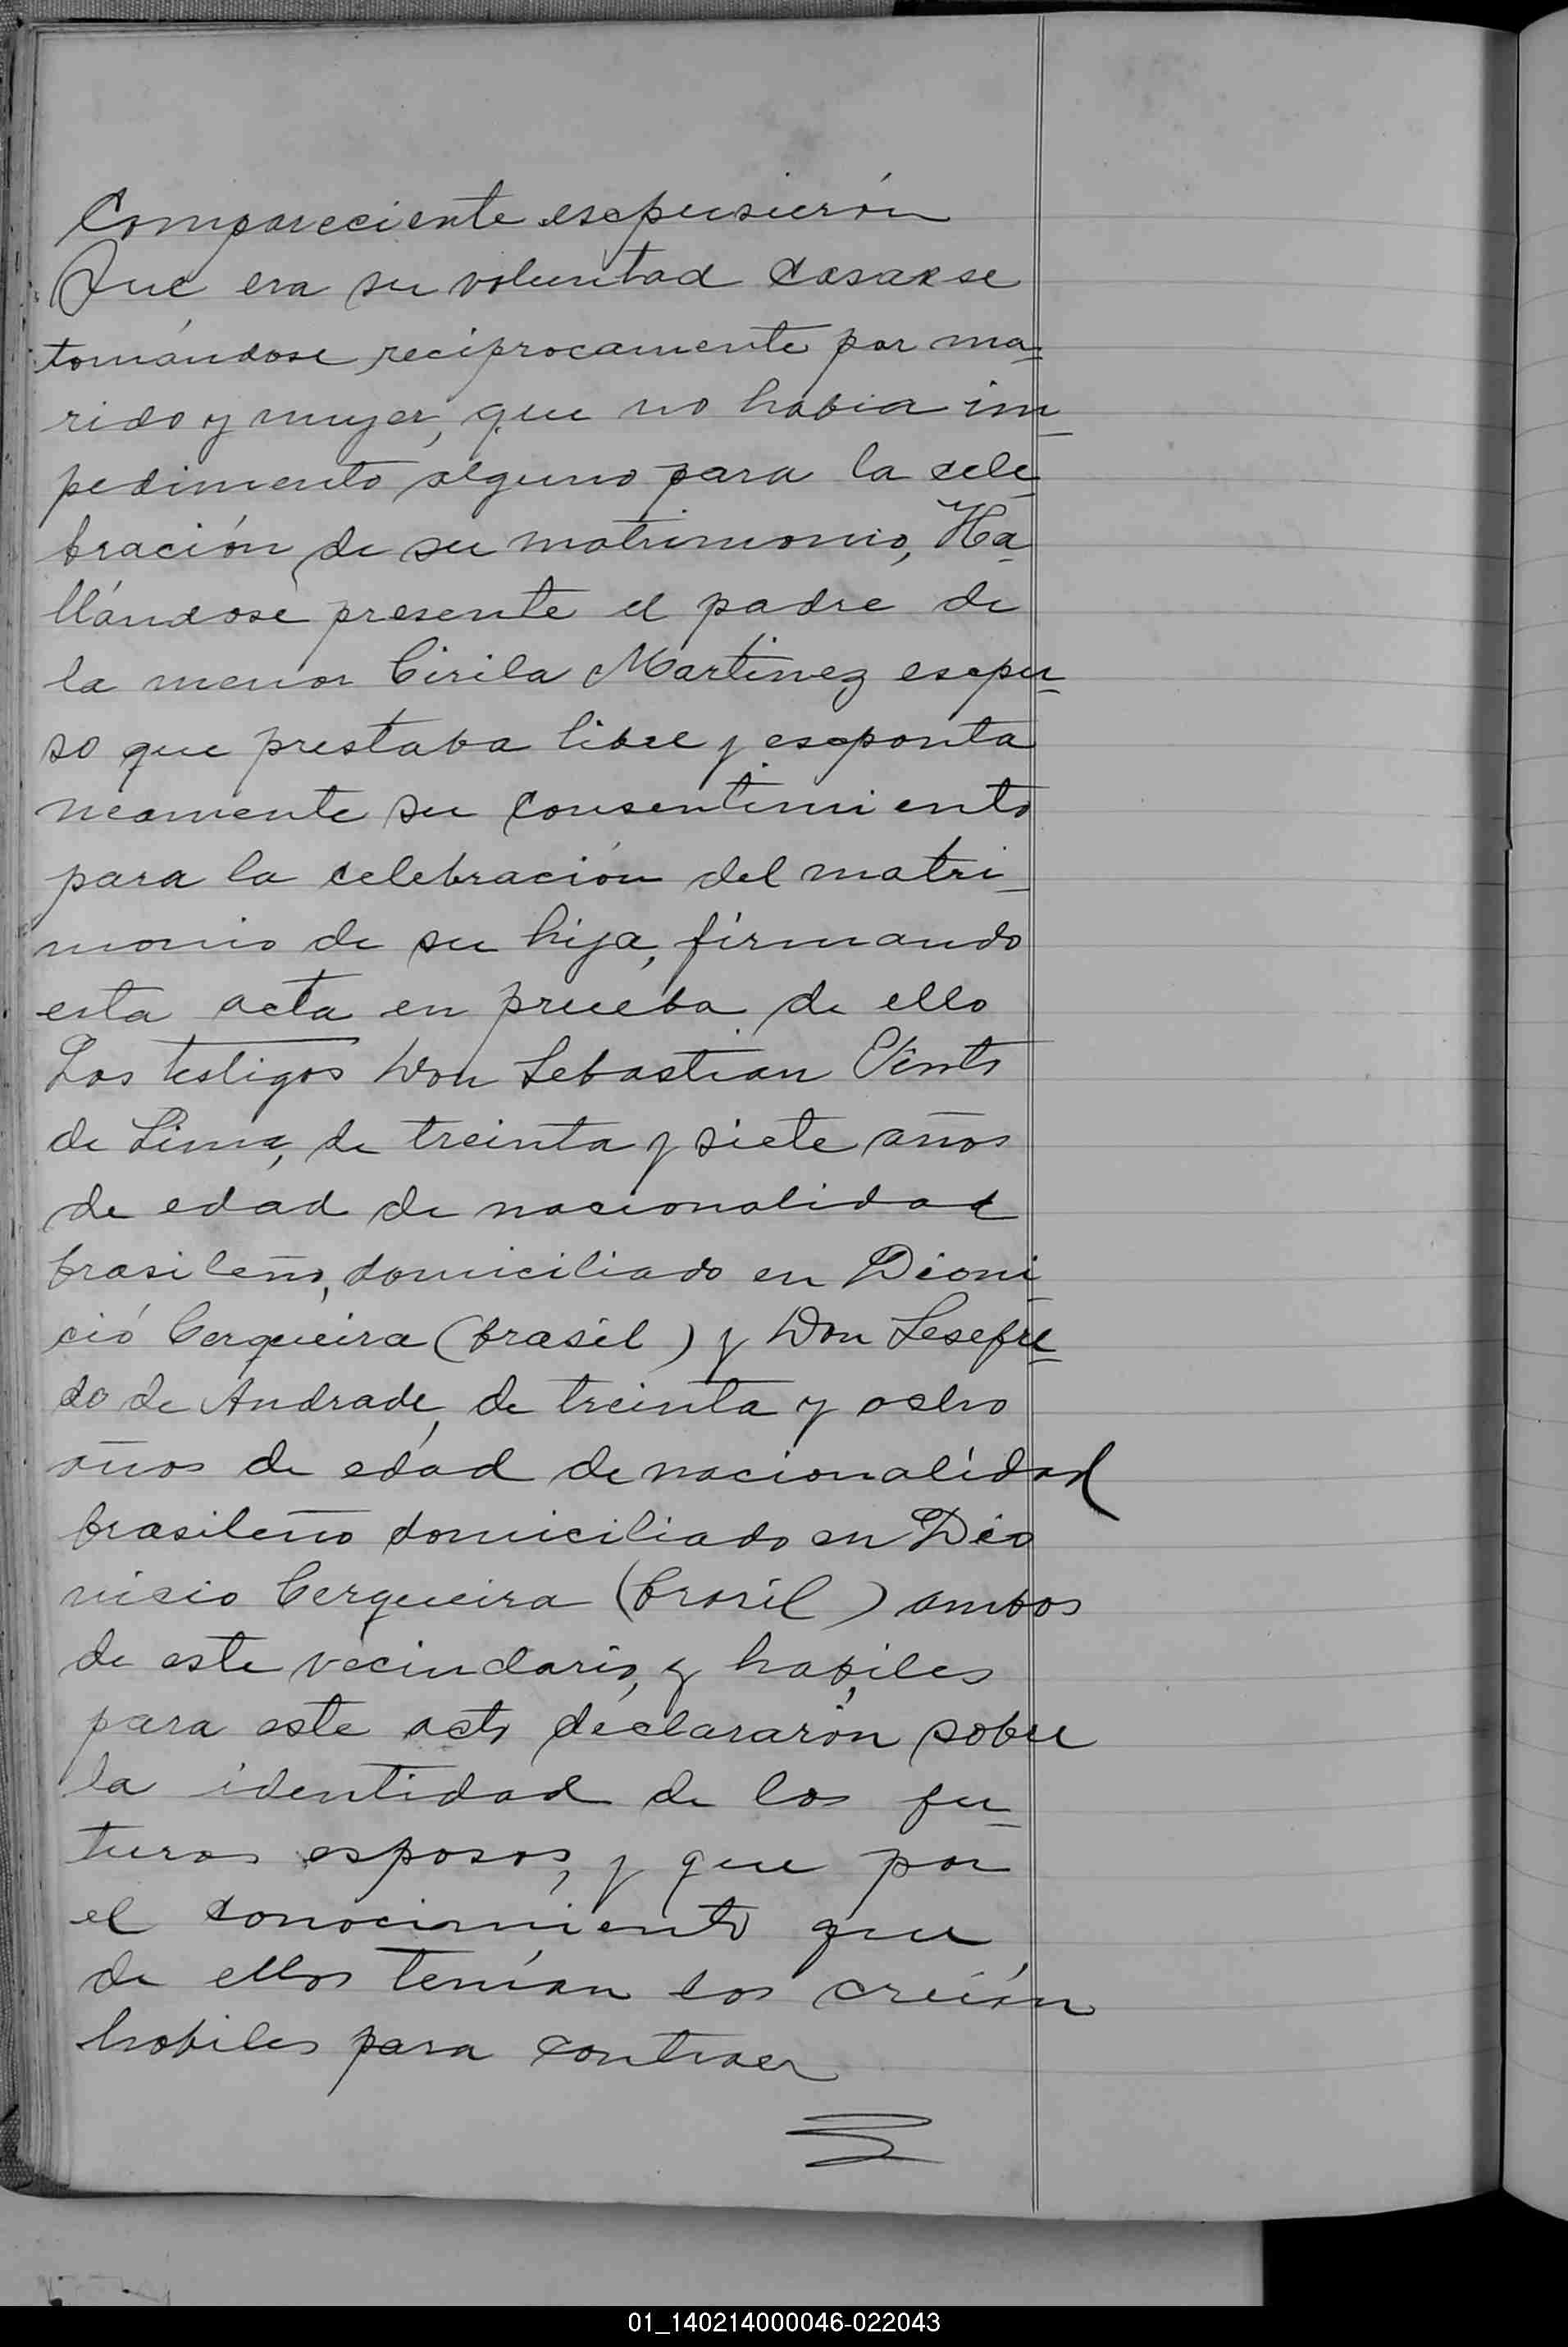 Compareciente esepusierón
Que era su voluntad casarse
tomándose recíprocamente por ma-
rido y mujer, que no habia im-
pedimento alguno para la cele-
bración de su matrimonio, Ha-
llándose presente el padre de
la menor Cirila Martinez esepu-
so que prestaba libre y eseponta
neamente su consentimiento
para la celebración del matri-
monio de su hija, firmando
esta acta en prueba de ello
Los testigos Don Sebastian
de Lima, de treinta y siete años
de edad de nacionalidad
brasileño, domiciliado en Dioni-
ció Cerqueira (brasil) y Don
do de Andrade, de treinta y ocho
años de edad de nacionalidad
brasileño domiciliado en Dio
nisio Cerqueira (brasil) ambos
de este vecindario, y habiles
para este acto declararón sobre
la identidad de los fu-
turos esposos, y que por
el conocimiento que
de ellos tenían los creíán
habiles para contraer
01_140214000046-022043